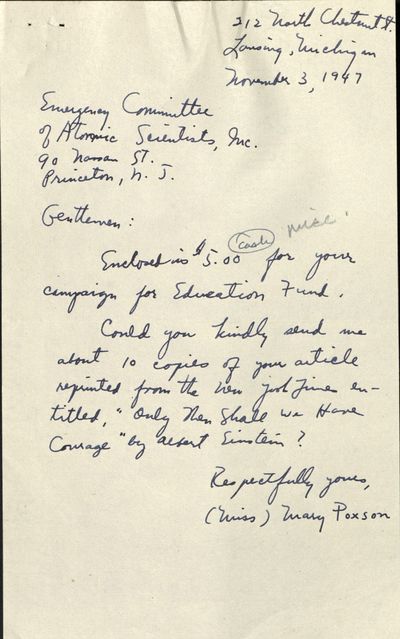 212 North Chestnut St.
Lansing, Michigan
November 3, 1947
Emergency Committee
of Atomic Scientists, Inc.
90 Nassau St.
Princeton, N. J.
Gentlemen:
misc.
Enclosed is $5.00 (cash) for your
campaign for Education Fund.
Could you kindly send me
about 10 copies of your article
reprinted from the New York Times en-
titled, "Only Then Shall We Have
Courage" by Albert Einstein?
Respectfully yours,
(Miss) Mary Poxson